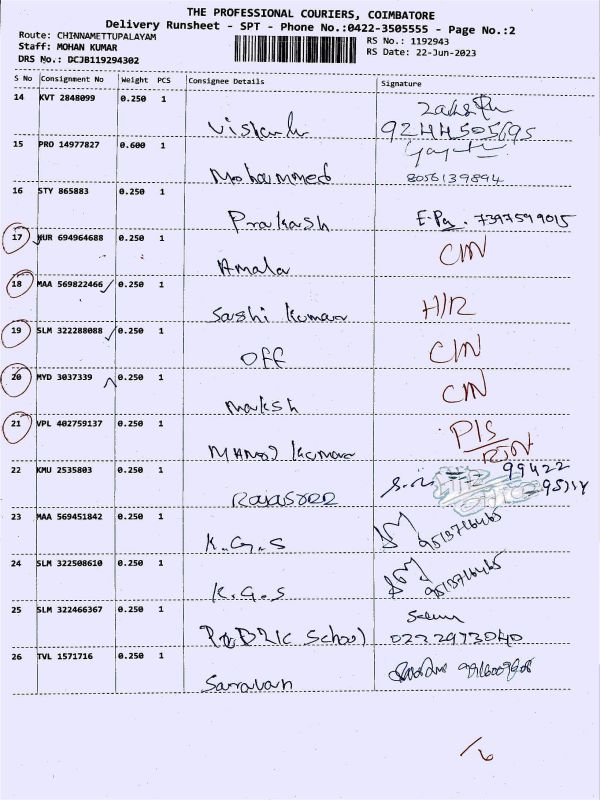 THE PROFESSIONAL COURIERS, COIMBATORE
Delivery Runsheet - SPT - Phone No.:0422-3505555 - Page No.:2
Route: CHINNAMETTUPALAYAM
Staff: MOHAN KUMAR
DRS No.: DCJB119294302
RS No.: 1192943
RS Date: 22-Jun-2023
S No Consignment No Weight PCS Consignee Details Signature
14 KVT 2848099 0.250 1
9244505695
15 PRO 14977827 0.600 1
Mohammed 8056139894
16 STY 865883 0.250 1
Prakash E-Pay. 7397599015
17 NUR 694964688 0.250 1
Amala CIN
18 MAA 569822466 0.250 1
Sashi Kumar H/R
19 SLM 322288088 0.250 1
Off CIN
20 MYD 3037339 0.250 1
Maksh CIN
21 VPL 402759137 0.250 1
Manoj Kumar P/S
RTN
22 KMU 2535803 0.250 1
99422
23 MAA 569451842 0.250 1
K.G.S 9513716465
24 SLM 322508610 0.250 1
K.G.S 9513716465
25 SLM 322466367 0.250 1
School 0222973040
26 TVL 1571716 0.250 1
Saravan